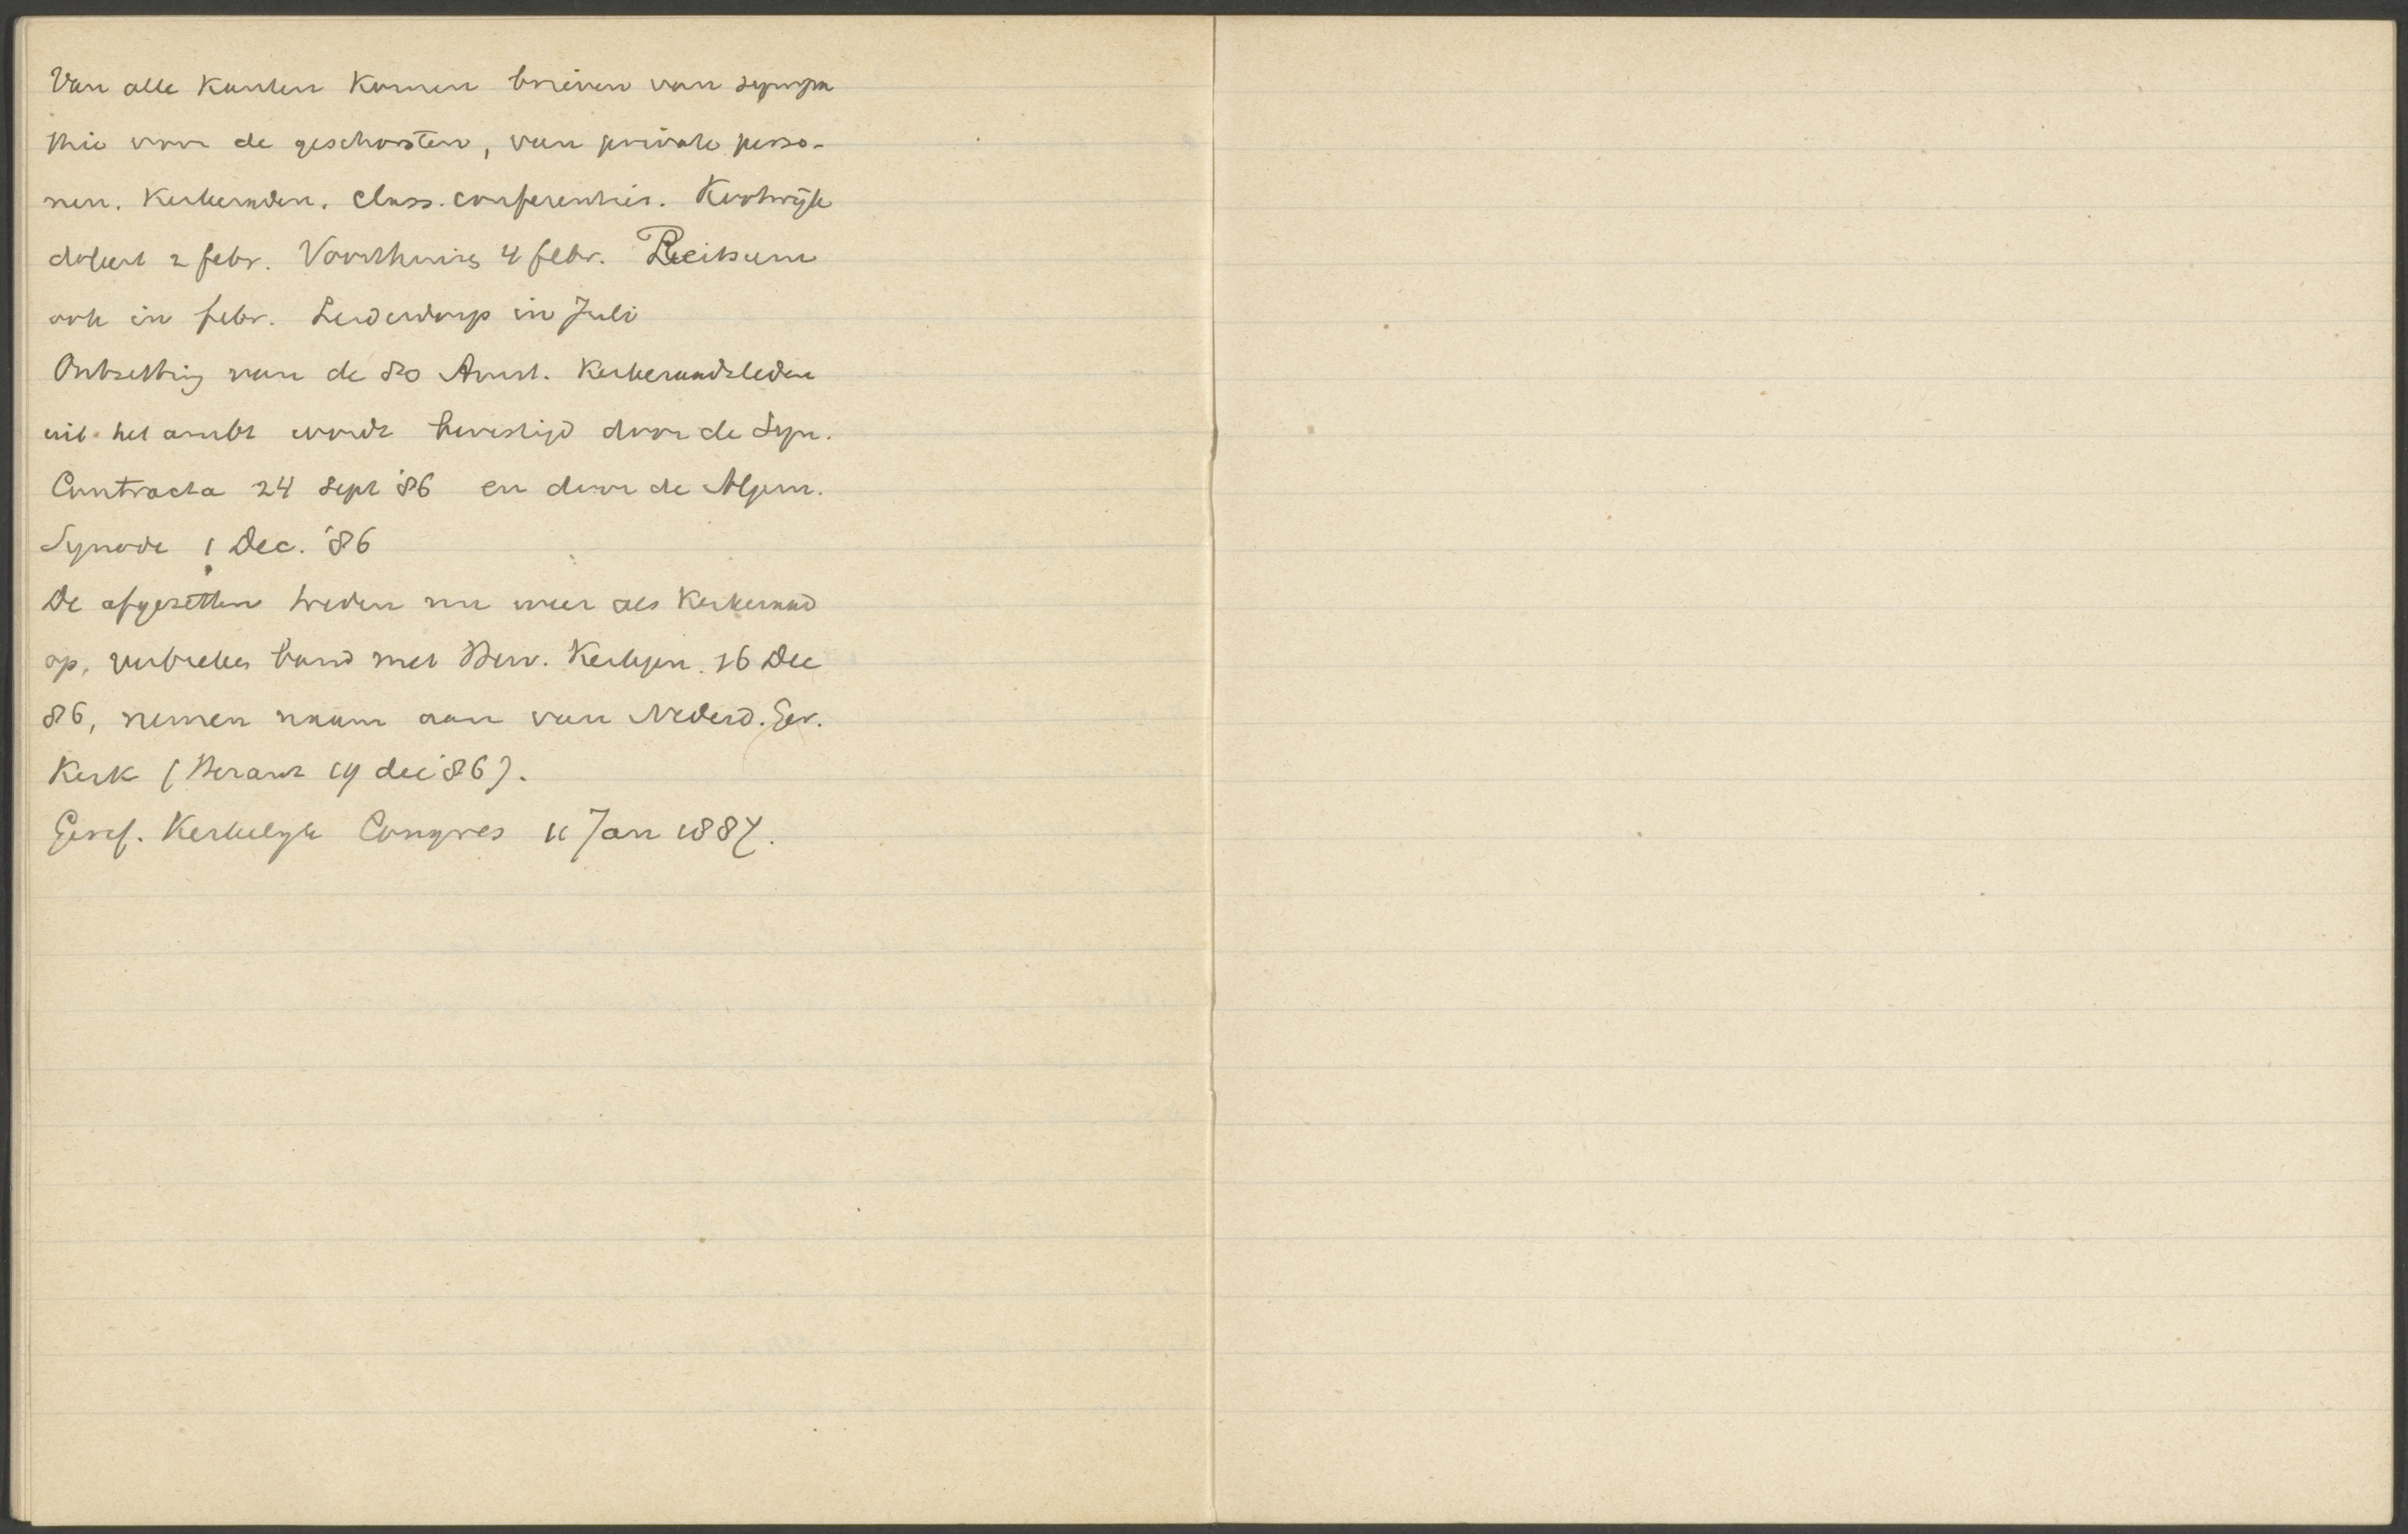 Van alle kanten komen brieven van sympa
thie voor de geschorsten, van private perso-
nen. Kerkeraden. Class. conferenties. Kootwijk
doleert 2 febr. Voorthuizen 4 febr. Reitsum
ook in febr. Leiderdorp in Juli
Ontzetting van de 80 Amst. Kerkeraadsleden
uit het ambt wordt bevestigd door de Syn.
Contracta 24 Sept '86 en door de Algem.
Synode 1 Dec. '86
De afgezetten treden nu weer als Kerkeraad
op, verbreken band met Herv. Kerkgen. 16 Dec
86, nemen naam aan van Nederd. Ger.
Kerk (Heraut 19 dec '86).
Geref. Kerkelijk Congres 11 Jan 1887.